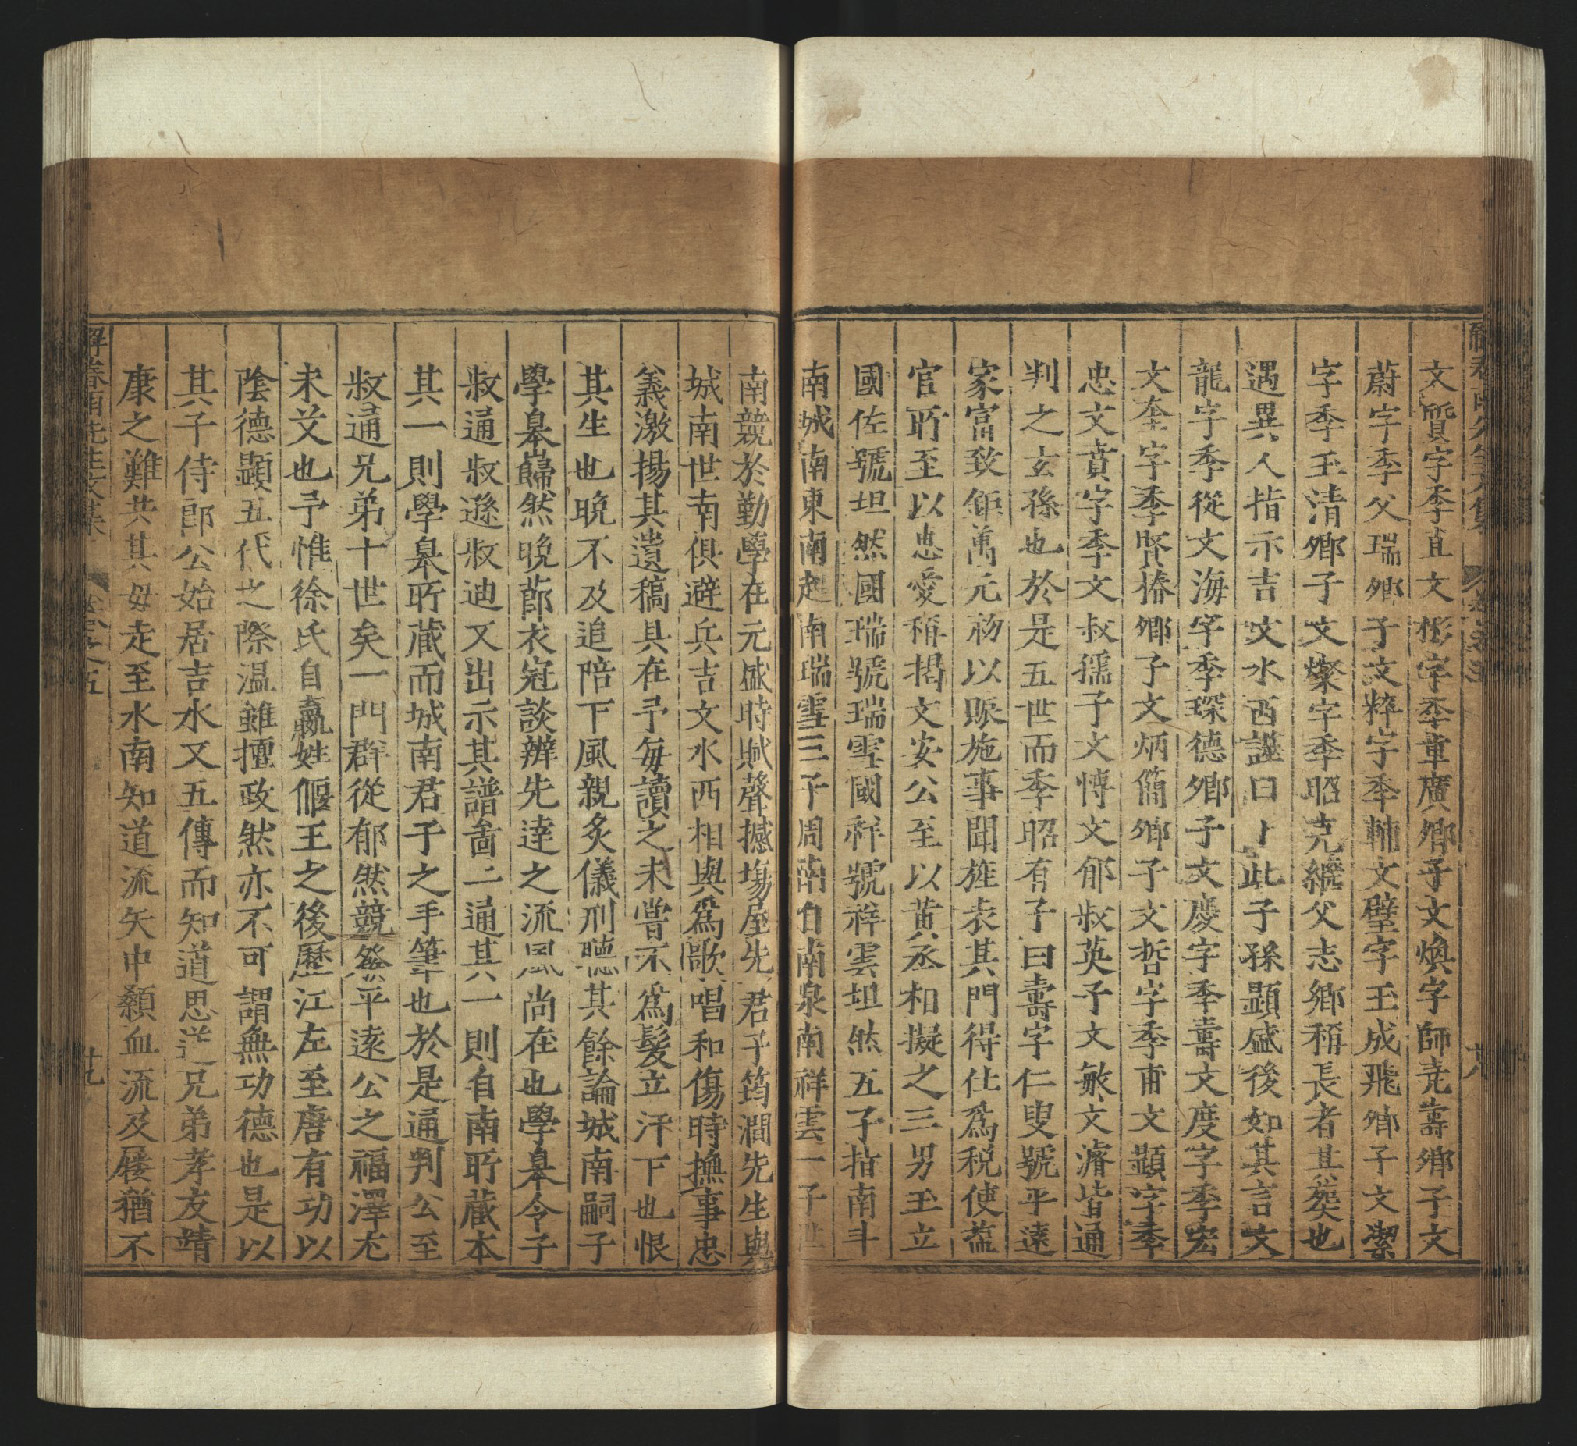 文質字季直文彬字季重廣鄉子文煥字師尭壽鄉子文
蔚字季父瑞鄉子文粹字季輔文壁字玉成飛鄉子文潔
字季玉清鄉子文燦字季昭克纘父志鄉稱長者其葬也
遇異人指示吉文水西謡曰卜此子孫顯盛後如其言文
龍字季從文海字季琛德鄉子文慶字季壽文度字季宏
文奎字季賢椿鄉子文炳簡鄉子文哲字季甫文顯字季
忠文賁字季文叔孺子文博文郁叔英子文敏文濬皆通
判之玄孫也於是五世而季昭有子曰壽字仁叟號平遠
家富致鉅萬元初以賑施事聞旌表其門得仕爲税使葢
官所至以忠愛稱揭文安公至以黄丞相擬之三男玉立
國佐號坦然國瑞號瑞雪國祥號祥雲坦然五子指南斗
南城南東南起南瑞雪三子周南自南泉南祥雲一子世
南競於勤學在元盛時賦聲撼塲屋先君子筠澗先生與
城南世南俱避兵吉文水西相與爲歌唱和傷時撫事忠
義激揚其遺稿具在予每讀之未嘗不爲髮立汗下也恨
其生也晩不及追陪下風親炙儀刑聴其餘論城南嗣子
學臯巋然晩節衣冠談辨先逹之流風尚在也學臯令子
叔通叔遜叔迪又出示其譜啚二通其一則自南所藏本
其一則學臯所藏而城南君子之手筆也於是通判公至
叔通兄弟十世矣一門群從郁然競爽平逺公之福澤尢
未艾也予惟徐氏自嬴姓偃王之後歷江左至唐有功以
陰德顯五代之際温雖擅政然亦不可謂無功德也是以
其子侍郎公始居吉水又五傳而知道思逆兄弟孝友靖
康之難共其毋走至水南知道流矢中顙血流及屨猶不
解春雨先生文集
卷之五
廿九
廿八